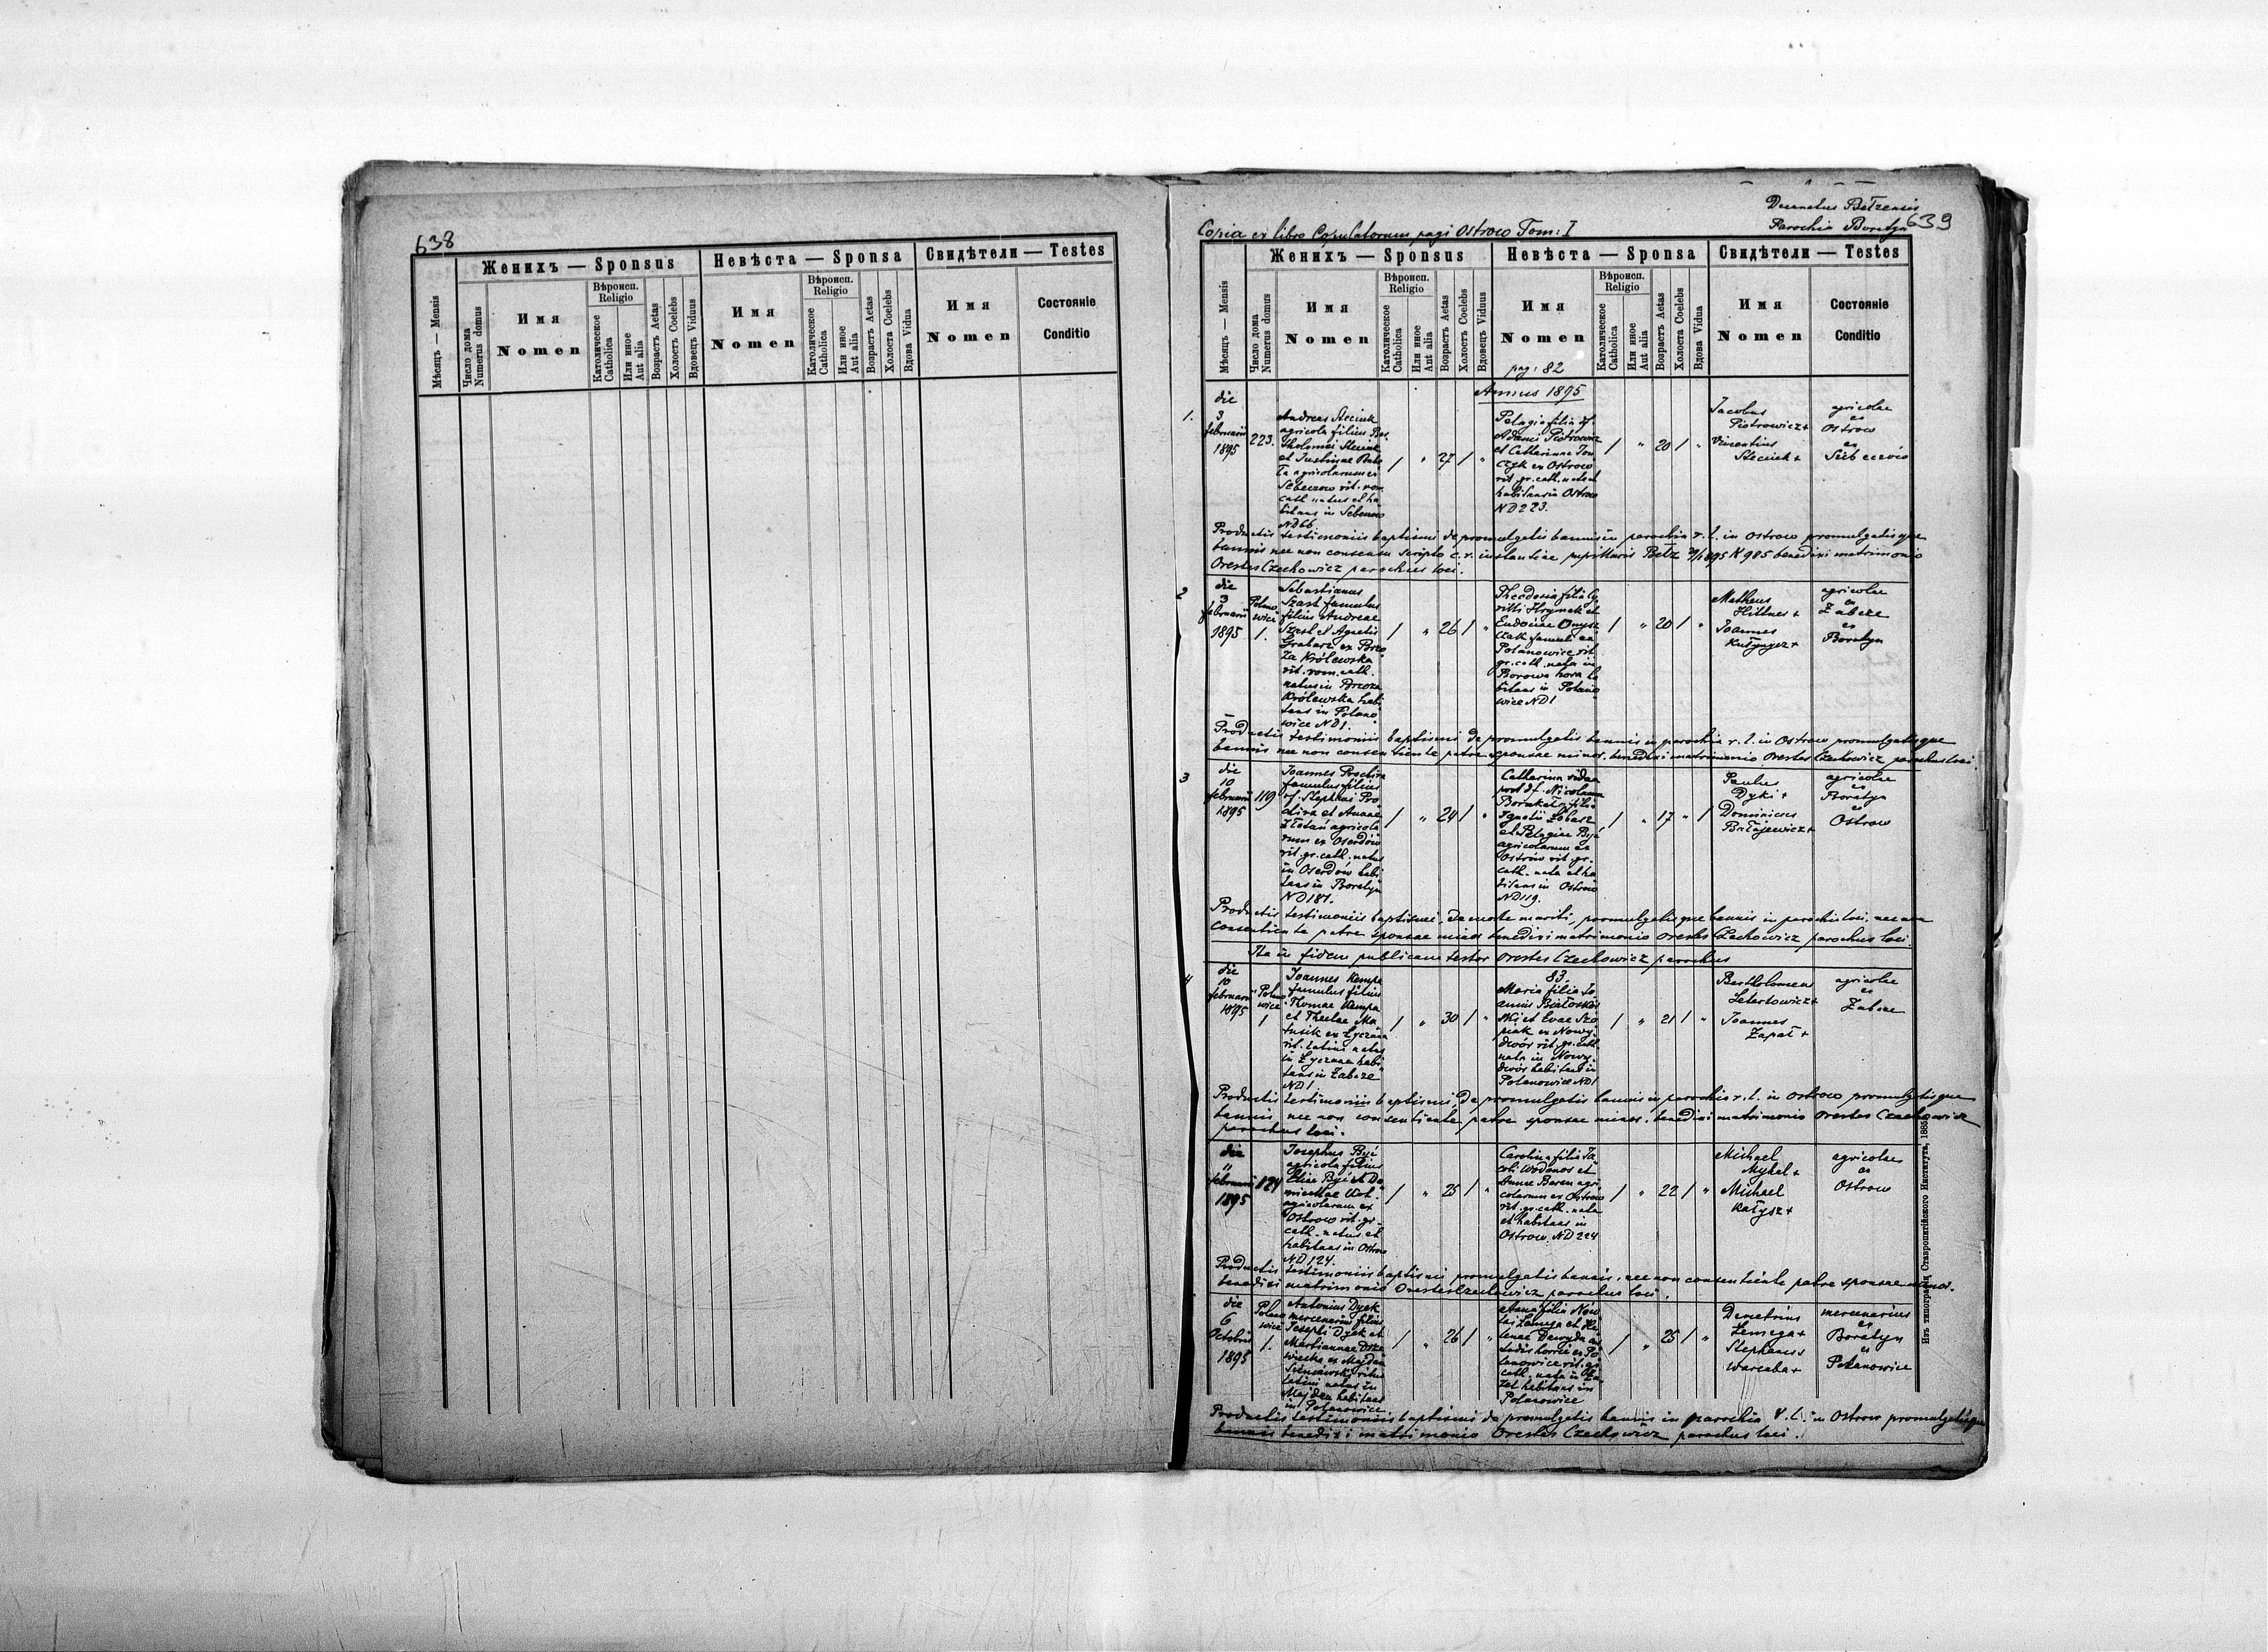 638
Женихъ — Sponsus
Невѣста — Sponsa
Свидѣтели — Testes
Мѣсяцъ — Mensis
Число дома
Numerus domus
Имя
Nomen
Вѣроисп.
Religio
Католическое
Catholica
Или иное
Aut alia
Возрастъ Aetas
Холостъ Coelebs
Вдовецъ Viduus
Имя
Nomen
Вѣроисп.
Religio
Католическое
Catholica
Или иное
Aut alia
Возрастъ Aetas
Холоста Coelebs
Вдова Vidua
Имя
Nomen
Состояніе
Conditio
Decanatus Bełzensis
Parochia Boratyn
639
Copia ex libro Copulatorum pagi Ostrow Tom: I
Женихъ — Sponsus
Невѣста — Sponsa
Свидѣтели — Testes
Мѣсяцъ — Mensis
Число дома
Numerus domus
Имя
Nomen
Вѣроисп.
Religio
Католическое
Catholica
Или иное
Aut alia
Возрастъ Aetas
Холостъ Coelebs
Вдовецъ Viduus
Имя
Nomen
pag: 82
Вѣроисп.
Religio
Католическое
Catholica
Или иное
Aut alia
Возрастъ Aetas
Холоста Coelebs
Вдова Vidua
Имя
Nomen
Состояніе
Conditio
Annus 1895
1.
die
3
februarii
1895
223.
Andreas Steciuk
agricola filius Bar
tholomei Steciuk
et Justinae
agricolarum ex
Sebeczow rit. rom.
cath. natus et ha
bitans in Sebeczow
ND 66
/ " 27 / "
Pelagia filia df.
Adami Piotrowicz
et Catharinae Tom
czyk ex Ostrow
rit. gr. cath. nata et
habitans in Ostrow
ND 223.
/ " 20 / "
Jacobus
Piotrowicz +
Vincentius
Steciuk +
agricolae
ex
Ostrow
ex
Productis testimoniis baptismi de promulgatis bannis in parochia r. l. in Ostrow promulgatisque
bannis nec non consensu scripto c. r. instantiae pupillaris Bełz 1895 N 985 benedixi matrimonio
Orestes Czechowicz parochus loci.
2
die
3
februarii
1895
Polano
wice
1.
Sebastianus
Szast famulus
filius Andreae
Szast et Agnetis
Grabarz ex Brzo
za Królewska
rit. rom. cath.
natus in Brzoza
Królewska habi
tans in Polano
wice ND 1.
/ " 26 / "
Theodosia filia Cy
rilli Hrynek et
Eudociae Onysz
famuli ex
Polanowice rit.
gr. cath. nata in
Borowa hora ha
bitans in Polano
wice ND 1
/ " 20 / "
Matheus
Hittner +
Joannes
agricolae
ex
Zabcze
ex
Boratyn
Productis testimoniis baptismi de promulgatis bannis in parochia r. l. in Ostrow promulgatisque
bannis nec non consentiente patre sponsae minor. benedixi matrimonio Orestes Czechowicz parochus loci.
3
die
10
februarii
1895
119
Joannes Prochira
famulus filius
df. Stephani Pro
chira et Annae
agricola
rum ex Oserdów
rit. gr. cath. natus
in Oserdów habi
tans in Boratyn
ND 181.
/ " 24 / "
Catharina vidua
post df. Nicolaum
filia
Ignatii Łobasz
et Pelagiae Być
agricolarum ex
Ostrów rit. gr.
cath. nata et ha
bitans in Ostrow
ND 119.
/ " 17 " /
Paulus
Dyki +
Dominicus
Błażejewicz +
agricolae
ex
Boratyn
ex
Ostrow
Productis testimoniis baptismi, de morte mariti, promulgatisque bannis in parochia loci, nec non
consentiente patre sponsae minor benedixi matrimonio Orestes Czechowicz parochus loci.
Ita in fidem publicam testor Orestes Czechowicz parochus
4
die
10
februarii
1895
Polano
wice
1
Joannes Kempa
famulus filius
Thomae Kempa
et Theclae Ma
tusik ex Łyczana
rit. latini natus
in Łyczana habi
tans in Zabcze
ND 1
/ " 30 / "
83.
Maria filia Jo
annis Białoskór
ski et Evae Szo
piak ex Nowy
dwór rit. gr. cath.
nata in Nowy
dwór habitans in
Polanowice ND 1
/ " 21 / "
Bartholomeus
Letartowicz +
Joannes
Zapał +
agricolae
ex
Zabcze
Productis testimoniis baptismi de promulgatis bannis in parochia r. l. in Ostrow promulgatisque
bannis nec non consentiente patre sponsae minor. benedixi matrimonio Orestes Czechowicz
parochus loci.
die
11
februarii
1895
124
Josephus Być
agricola filius
Eliae Być et Do
minicae Kot
agricolarum ex
Ostrow rit. gr.
cath. natus et
habitans in Ostrow
ND 124.
/ " 25 / "
Carolina filia Ja
cobi Wodonos et
Annae Baran agri
colarum ex Ostrow
rit. gr. cath. nata
et habitans in
Ostrow. ND 224
/ " 22 / "
Michael
Mykal +
Michael
Kałysz +
agricolae
ex
Ostrow
Productis testimoniis baptismi promulgatis bannis, nec non consentiente patre sponsae minor.
benedixi matrimonio Orestes Czechowicz parochus loci.
die
6
Octobris
1895
Polano
wice
1.
Antonius Dyek
mercenarius filius
Josephi Dyek et
Mariannae
ex Majdan
Sieniawski ritus
latini natus in
Majdan habitans
in Polanowice
/ " 26 / "
Anna filia Nico
lai Lemega et He
lenae Dawyda
ex Po
lanowice rit. gr.
cath. nata in
habitans in
Polanowice
/ " 25 / "
Demetrius
Lemega +
Stephanus
Warcaba +
mercenarius
ex
Boratyn
ex
Polanowice
Productis testimoniis baptismi de promulgatis bannis in parochia r. l. in Ostrow promulgatisque
bannis benedixi matrimonio Orestes Czechowicz parochus loci.
Изъ типографіи Ставропигійского Института, 1885.